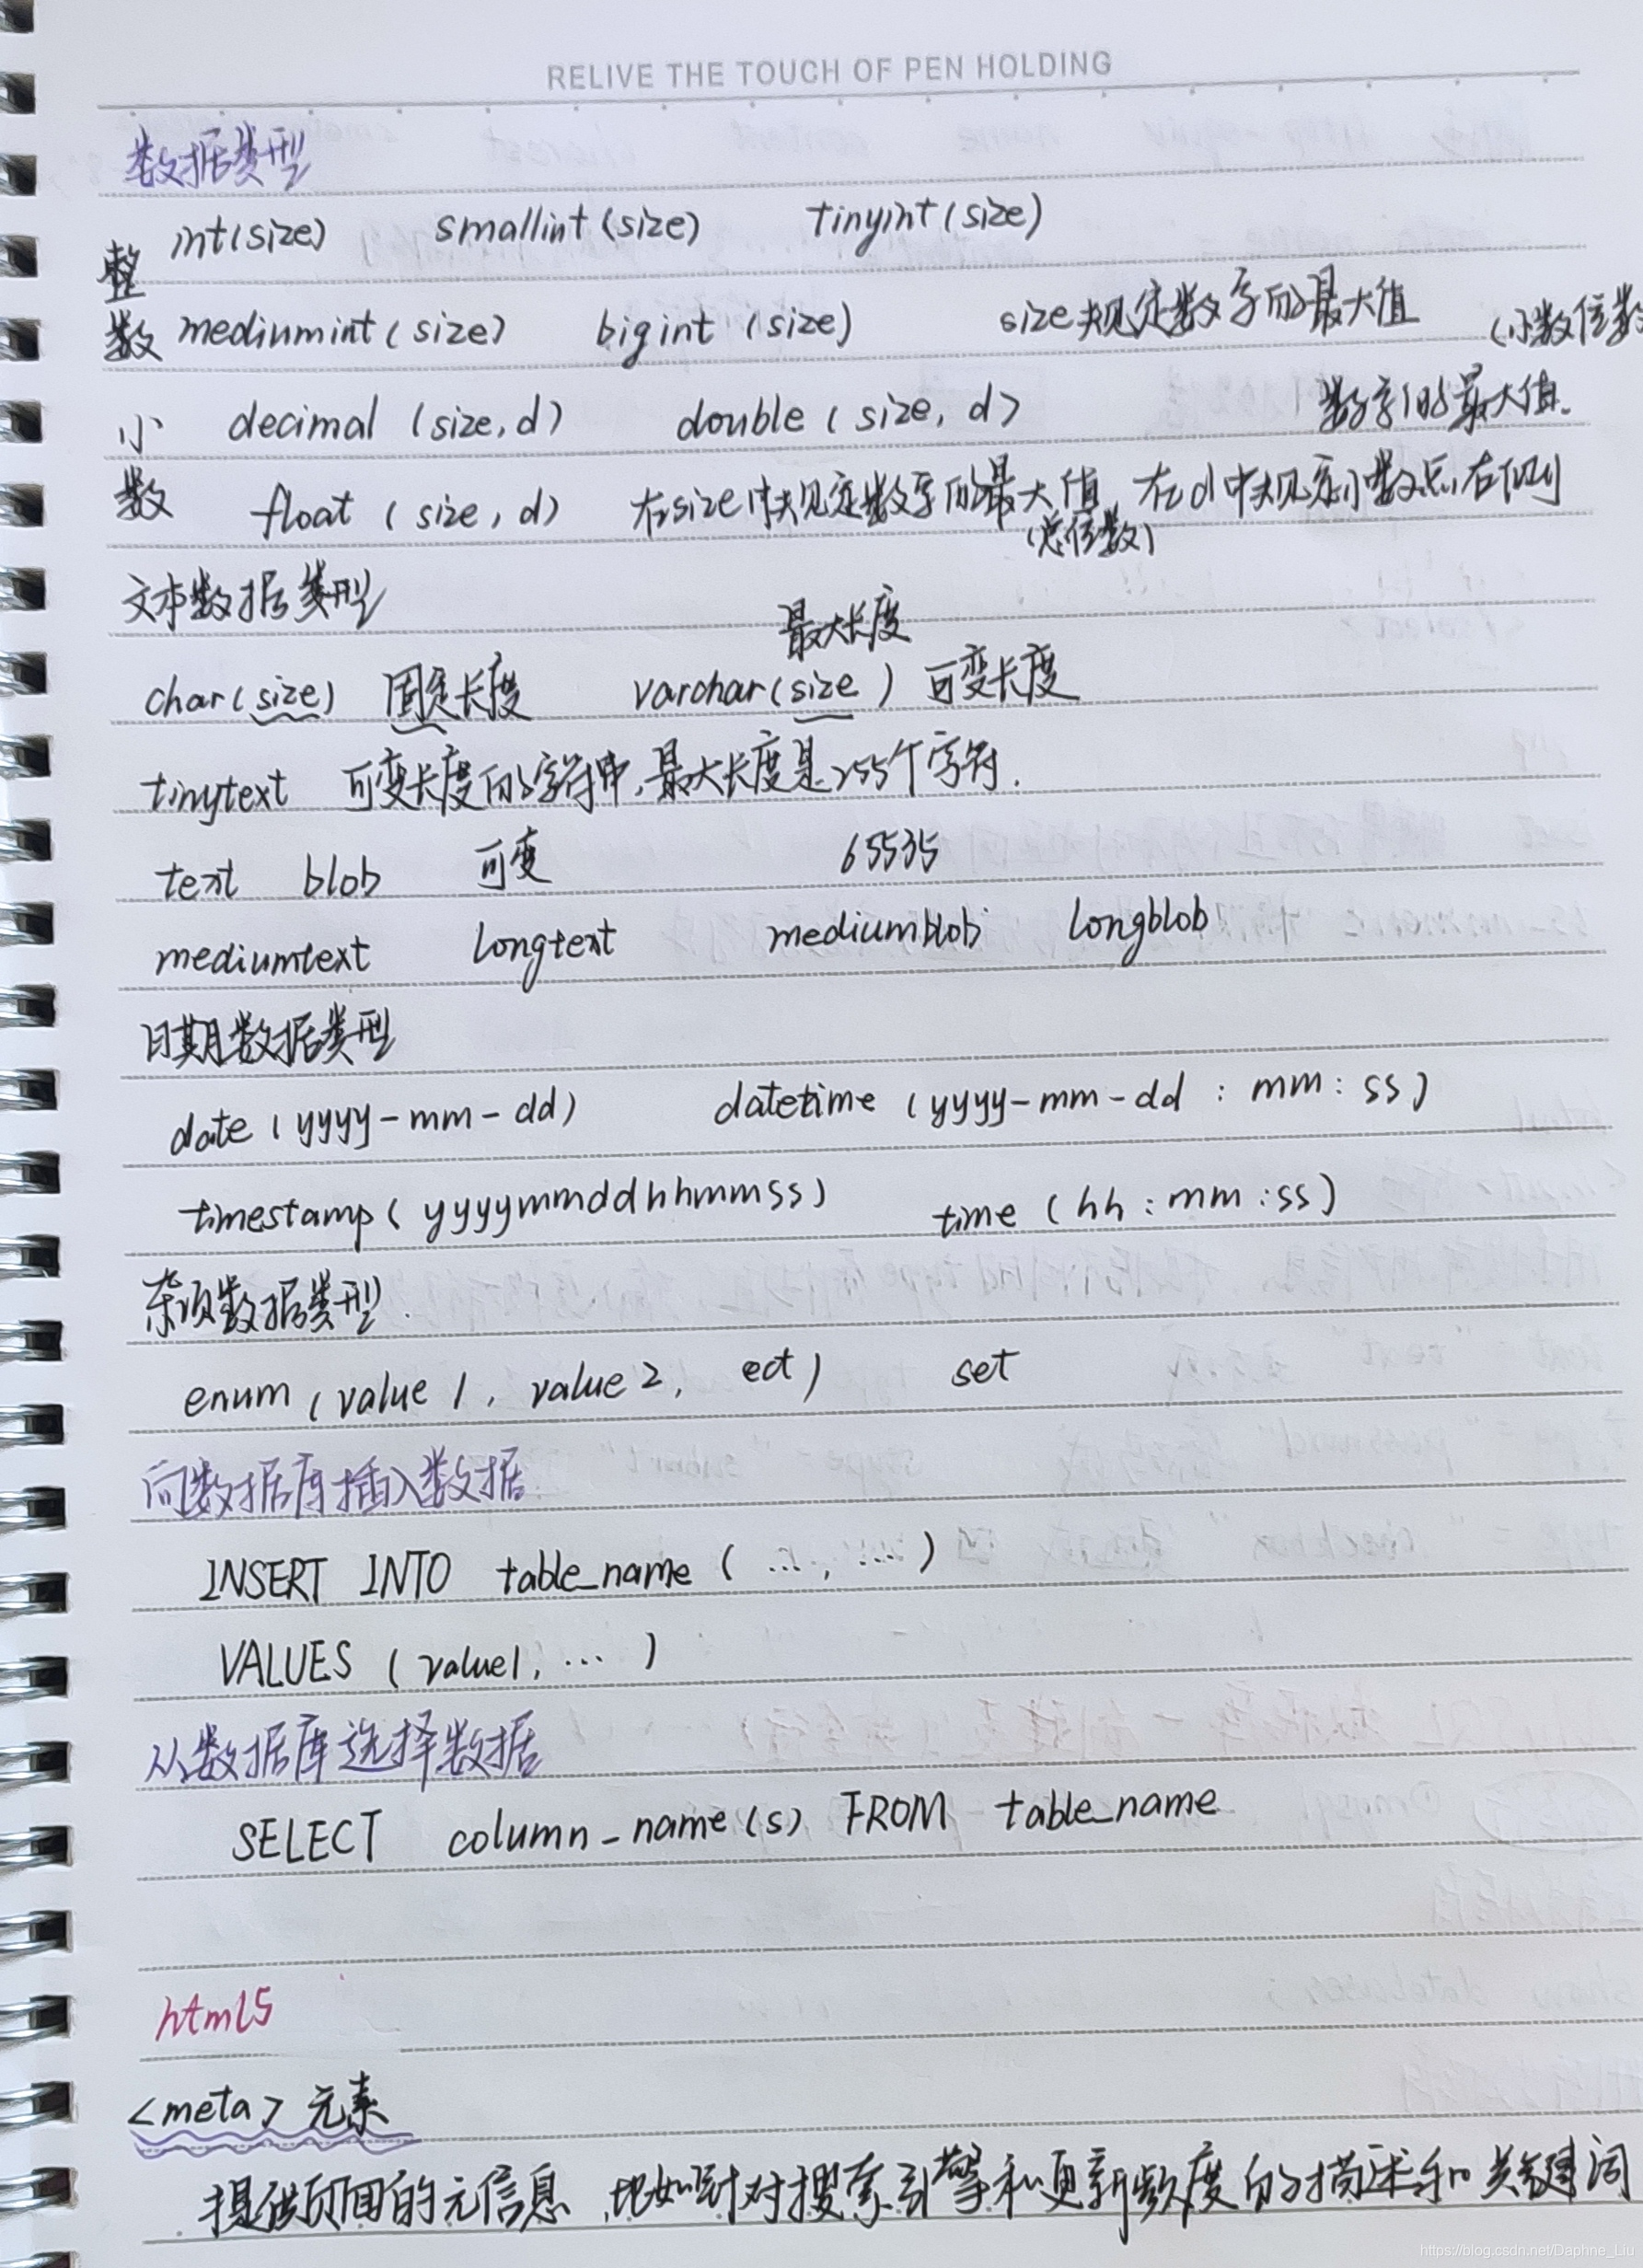 RELIVE THE TOUCH OF PEN HOLDING
数据类型
整 int(size) smallint(size) tinyint(size)
数 mediumint(size) bigint(size) size规定数字的最大值 (小数位数
小 decimal(size,d) double(size,d) 数字的最大值.
数 float(size,d) 在size中规定数字的最大值,在d中规定小数点右侧
(总位数)
文本数据类型
最大长度
char(size) 固定长度 varchar(size) 可变长度
tinytext 可变长度的字符串,最大长度是255个字符.
text blob 可变 65535
mediumtext longtext mediumblob longblob
日期数据类型
date(yyyy-mm-dd) datetime(yyyy-mm-dd : mm:ss)
timestamp(yyyymmddhhmmss) time(hh:mm:ss)
杂项数据类型.
enum(value1, value2, ect) set
向数据库插入数据
INSERT INTO table_name ( ..., .... )
VALUES (value1, ... )
从数据库选择数据
SELECT column_name(s) FROM table_name
html5
<meta>元素
提供页面的元信息,比如针对搜索引擎和更新频度的描述和关键词
https://blog.csdn.net/Daphne_Liu